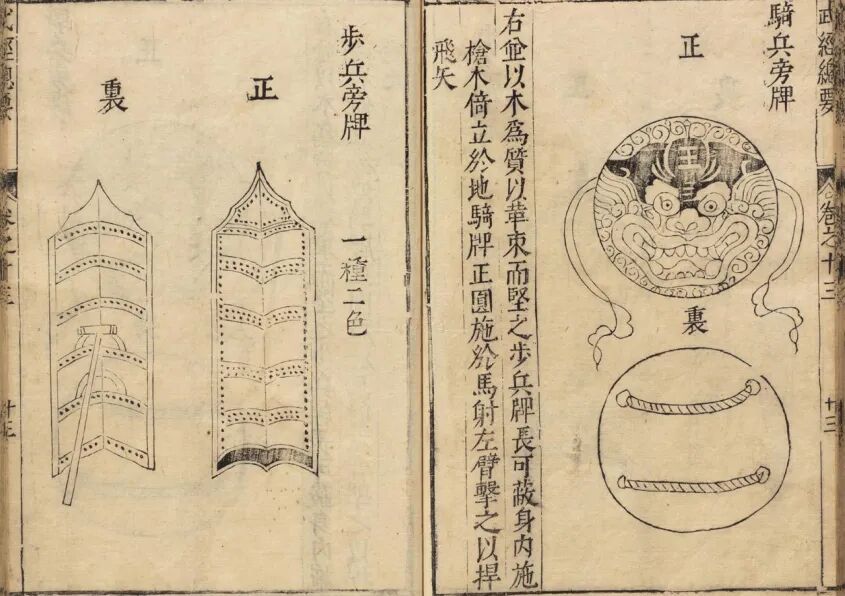 武經總要
卷之十三
十三
騎兵旁牌
正
王
裏
右並以木爲質以革束而堅之步兵牌長可蔽身内施
槍木倚立於地騎牌正圓施於馬射左臂擊之以捍
飛矢
步兵旁牌
一種二色
正
裏
武經總要
卷之十三